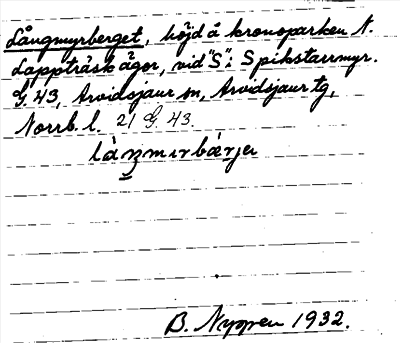 Långmyrberget, höjd å kronoparken N.
Lappträskägor, vid "S" i Spikstarrmyr.
G 43, Arvidsjaur sn, Arvidsjaur tg,
Norrb. l. 21 G 43.
B. Nyppen 1932.